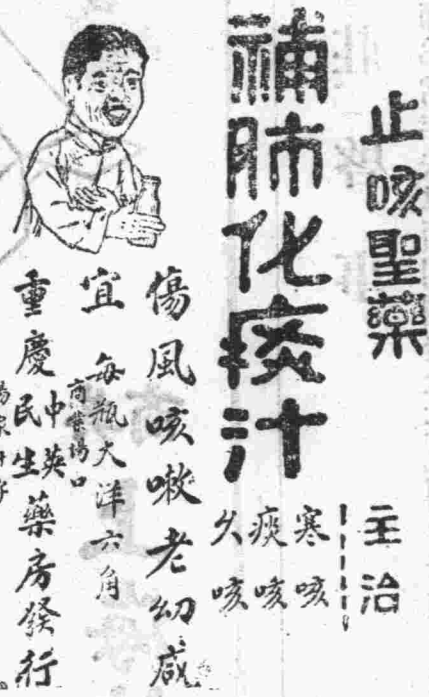 止咳聖藥
補肺化痰汁
主治
寒咳
痰咳
久咳
傷風咳嗽老幼咸
宜
每瓶大洋六角
商業場口
重慶
中英
民生
藥房發行